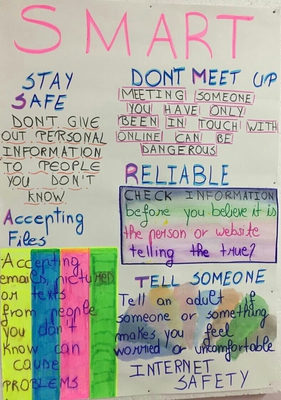 SMART
STAY
SAFE
DON'T GIVE
OUT PERSONAL
INFORMATION
TO PEOPLE
YOU DON'T
KNOW
DONT MEET UP
MEETING SOMEONE
YOU HAVE ONLY
BEEN IN TOUCH WITH
ONLINE CAN BE
DANGEROUS
Accepting
Files
Accepting
emails, pictures
or texts
from people
you don't
know can
cause
PROBLEMS
RELIABLE
CHECK INFORMATION
before you believe it is
the person or website
telling the true?
TELL SOMEONE
Tell an adult if
someone or something
makes you feel
worried or uncomfortable
INTERNET
SAFETY